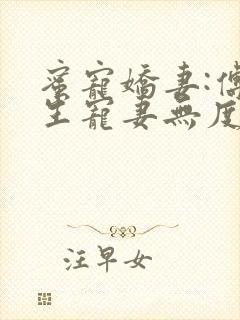 蜜寵嬌妻:傅
生寵妻無度
汪早女